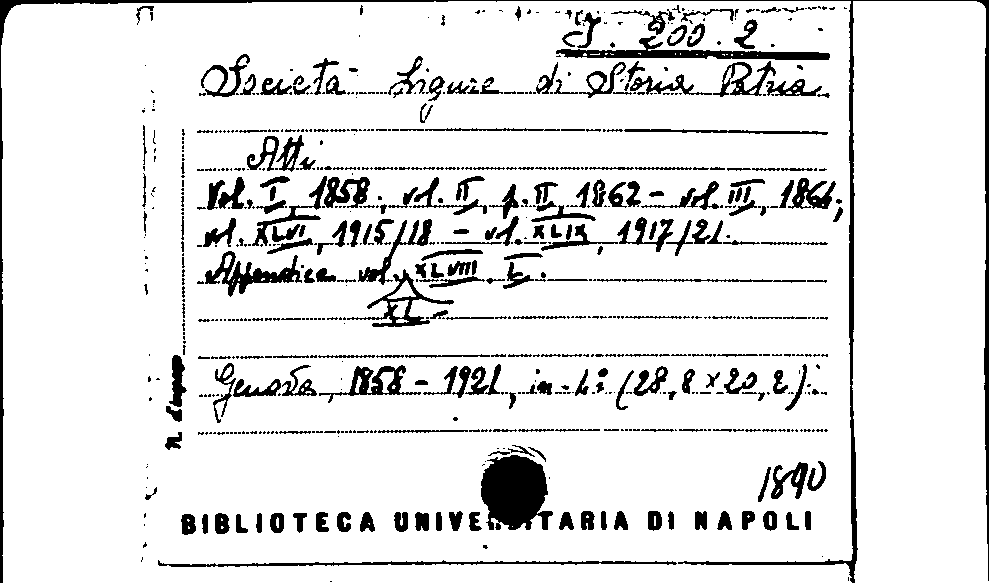 J. 200. 2.
Società Ligure di Storia Patria
Atti.
Vol. I, 1858; vol. II, p. II, 1862 - vol. III, 1864;
vol. XLVI, 1915/18 - vol. XLIX, 1917/21.
Appendice vol. XLVIII, L.
XL -
Genova, 1858 - 1921, in-4º (28,8 x 20,2).
N. d'ingresso
1890
BIBLIOTECA UNIVERSITARIA DI NAPOLI